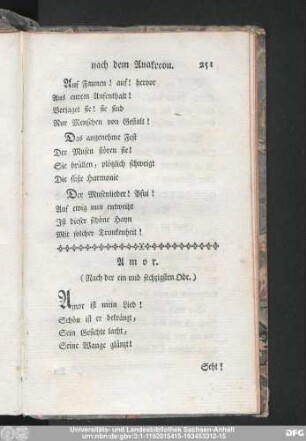 nach dem Anakreon. 251
Auf Faunen! auf! hervor
Aus eurem Aufenthalt!
Verjaget sie! sie sind
Nur Menschen von Gestalt!
Das angenehme Fest
Der Musen stören sie!
Sie brüllen, plötzlich schweigt
Die süße Harmonie
Der Musenlieder! Pfui!
Auf ewig nun entweiht
Ist dieser schöne Hayn
Mit solcher Trunkenheit!
Amor.
(Nach der ein und sechzigsten Ode.)
Amor ist mein Lied!
Schön ist er bekränzt,
Sein Gesichte lacht,
Seine Wange glänzt!
Seht!
Universitäts- und Landesbibliothek Sachsen-Anhalt
urn:nbn:de:gbv:3:1-1192015415-193453312-15
DFG